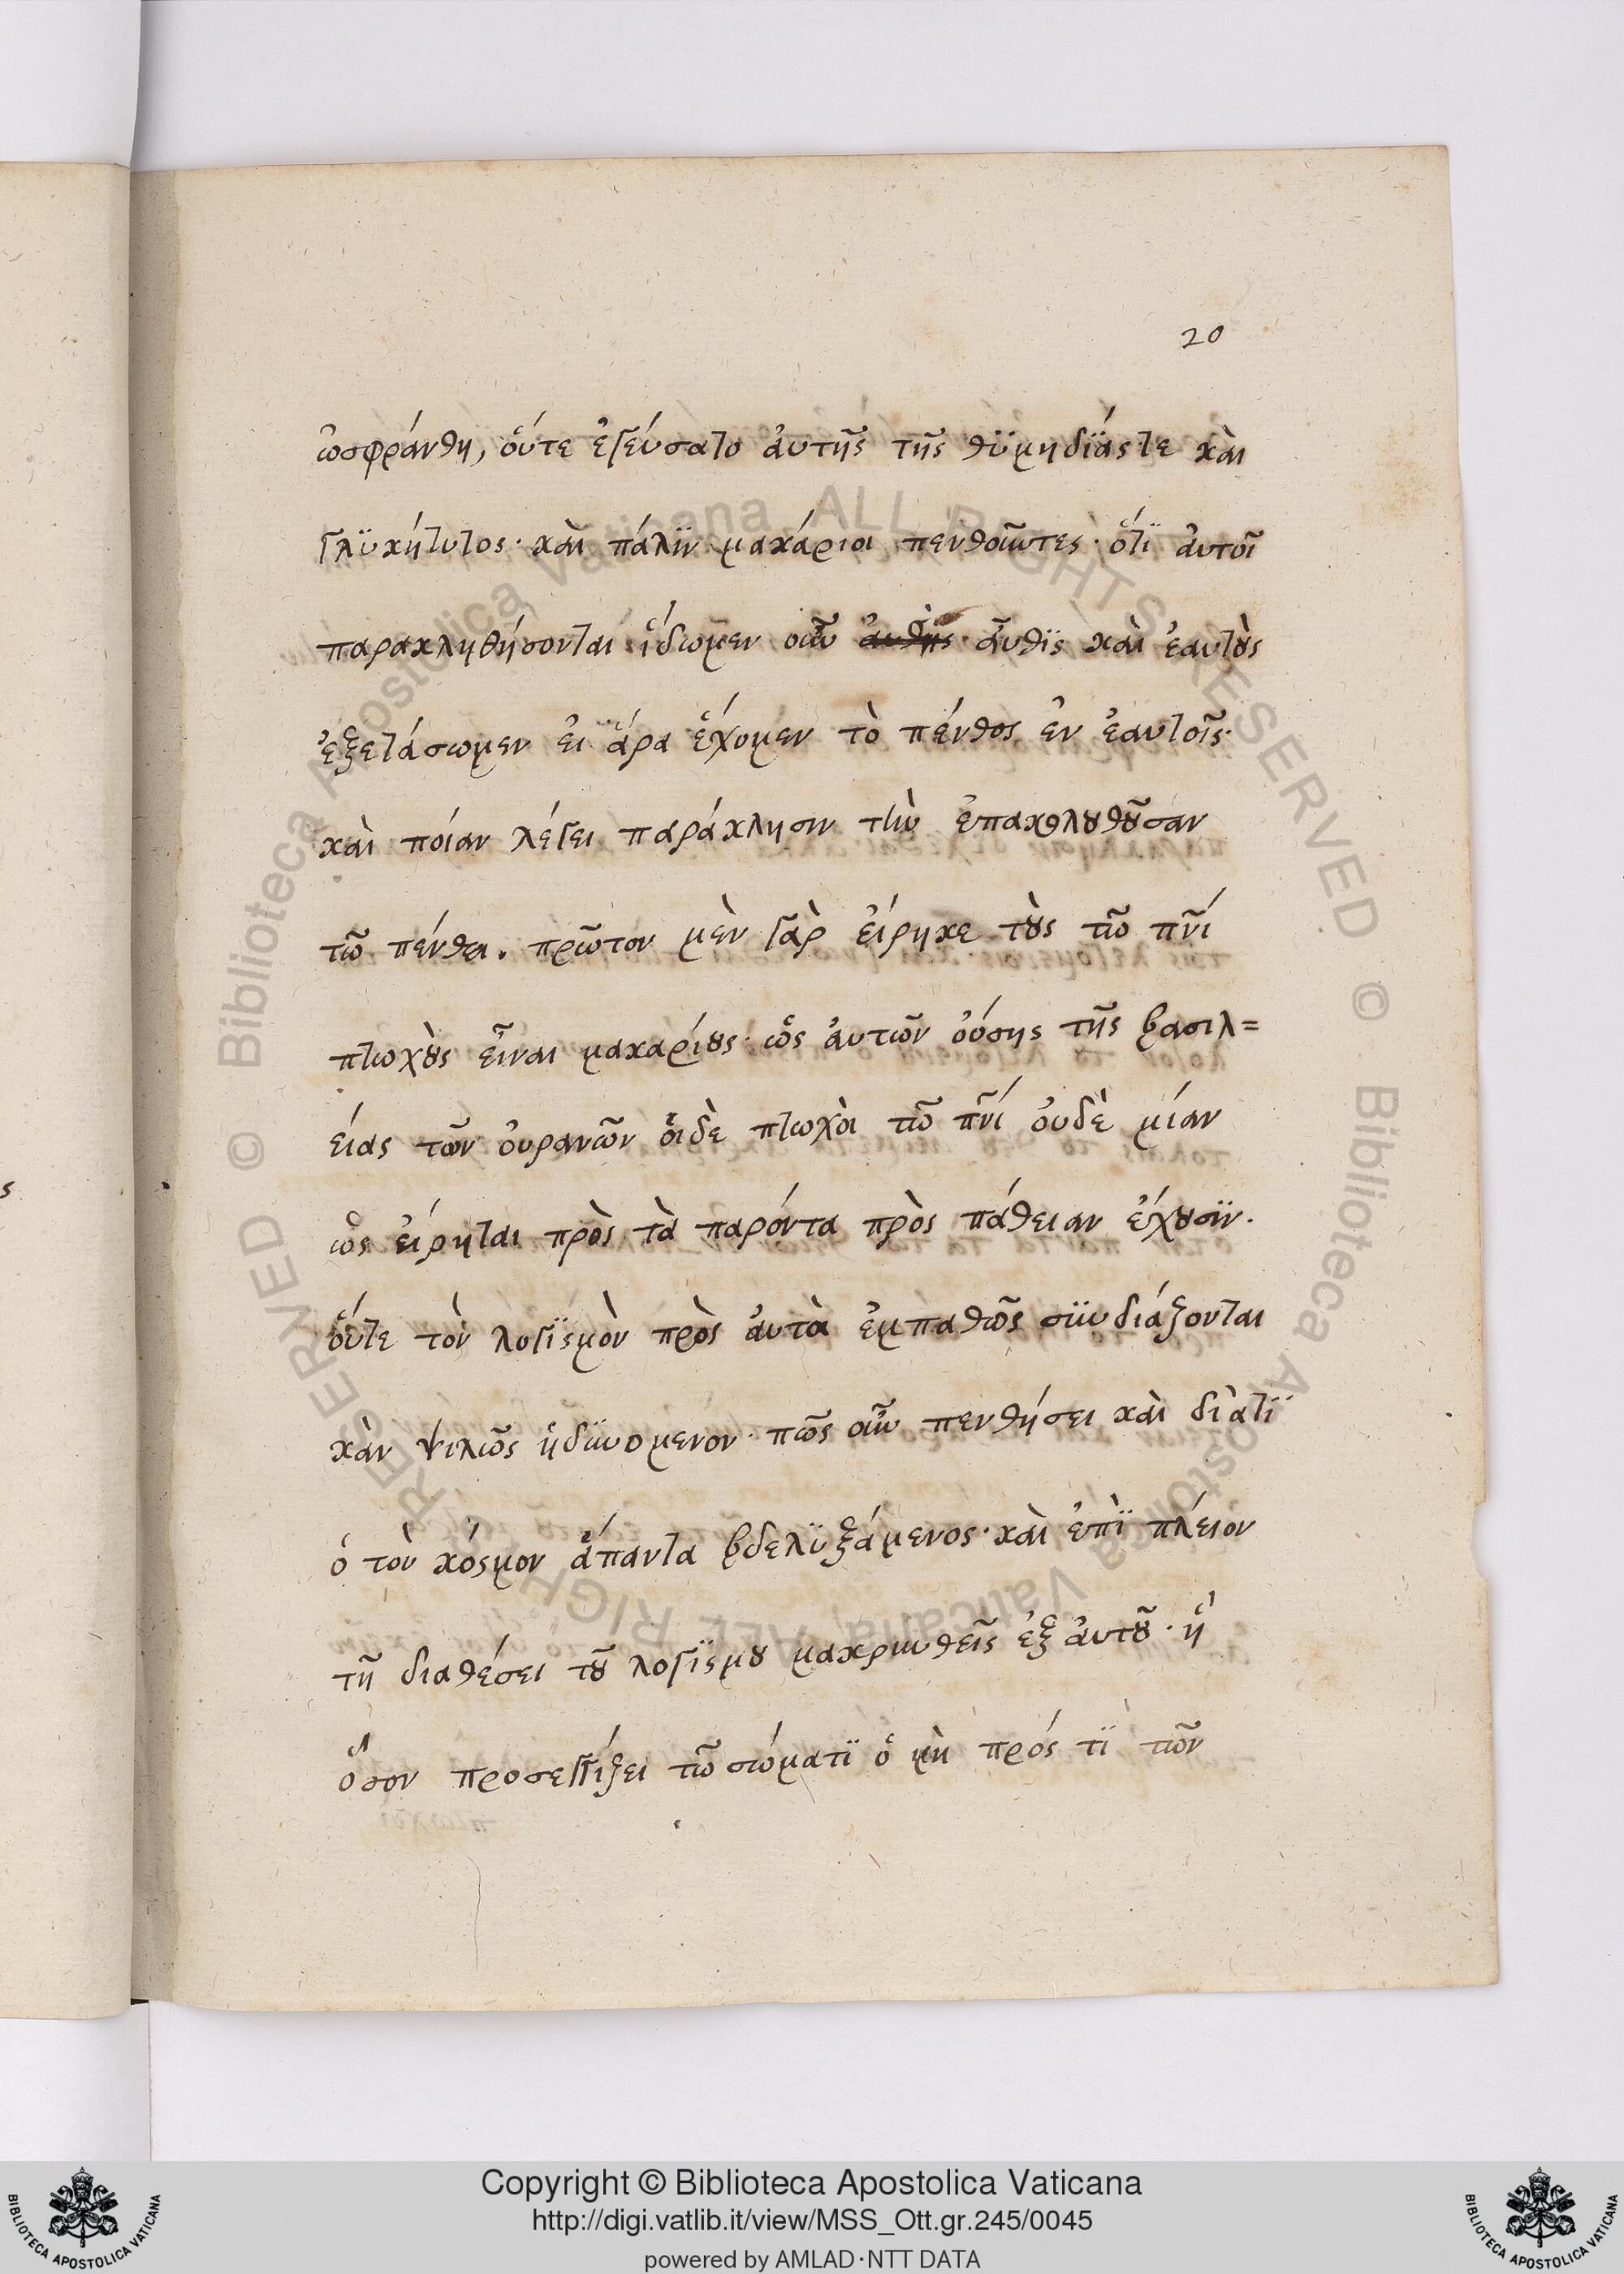 20
ὠσφράνθη, ὄυτε ἐγέυσατο ἀυτῆς τῆς θϋμηδϊάς τε κὰι
γλϋκήτυτος· κὰι πάλϊν μακάριοι πενθοῦντες· ὅτϊ ἀυτοῖ
παρακληθήσονται ἴδωμεν οὖν ἀυθῆς· ἆυθϊς κὰι ἑαυτοὺς
ἐξετάσωμεν ἐι ἄρα ἔχομεν τὸ πένθος ἐν ἑαυτοῖς·
κὰι ποίαν λέγει παράκλησιν τὴν ἐπακολουθοῦσαν
τῶ πένθει. πρῶτον μὲν γὰρ ἐίρηκε τοὺς τῶ πν̅ί
πτωχοὺς εἶναι μακαρίους· ὡς ἀυτῶν ὀύσης τῆς βασιλ=
είας τῶν ὀυρανῶν ὅιδὲ πτωχὸι τῶ πν̅ί ὀυδὲ μίαν
ὡς ἐίρηται πρὸς τὰ παρόντα πρὸς πάθειαν ἔχουσϊν·
ὄυτε τὸν λογϊσμὸν πρὸς ἀυτὰ ἐμπαθῶς σϋνδιάζονται
κὰν ψιλῶς ἡδϋνομενον· πῶς οὖν πενθήσει κὰι δϊατϊ
ὁ τὸν κόσμον ἅπαντα βδελϋξάμενος· κὰι ἐπῒ πλέιον
τῆ διαθέσει τοῦ λογϊσμου μακρυνθεῖς ἐξ ἀυτοῦ· ἢ
ὅσον προσεγγίζει τῶ σώματϊ ὁ μὴ πρός τϊ τῶν
Copyright © Biblioteca Apostolica Vaticana
http://digi.vatlib.it/view/MSS_Ott.gr.245/0045
powered by AMLAD·NTT DATA
BIBLIOTECA APOSTOLICA VATICANA
BIBLIOTECA APOSTOLICA VATICANA